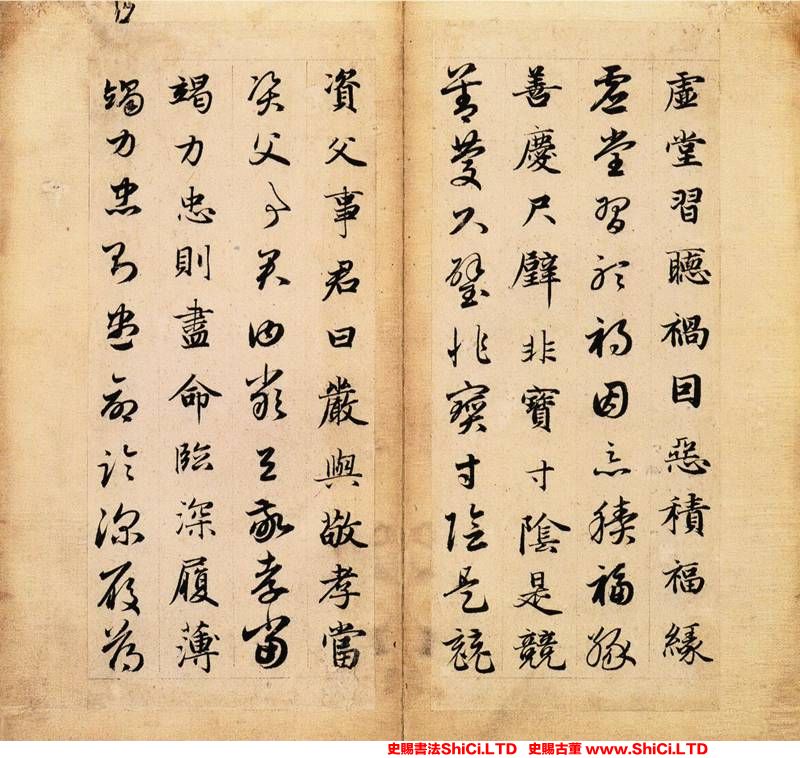 虛堂習聽禍因惡積福緣
虛堂習聽禍因惡積福緣
善慶尺璧非寶寸陰是競
善慶尺璧非寶寸陰是競
資父事君曰嚴與敬孝當
資父事君曰嚴與敬孝當
竭力忠則盡命臨深履薄
竭力忠則盡命臨深履薄
史賜書法ShiCi.LTD 史賜古董 www.ShiCi.LTD